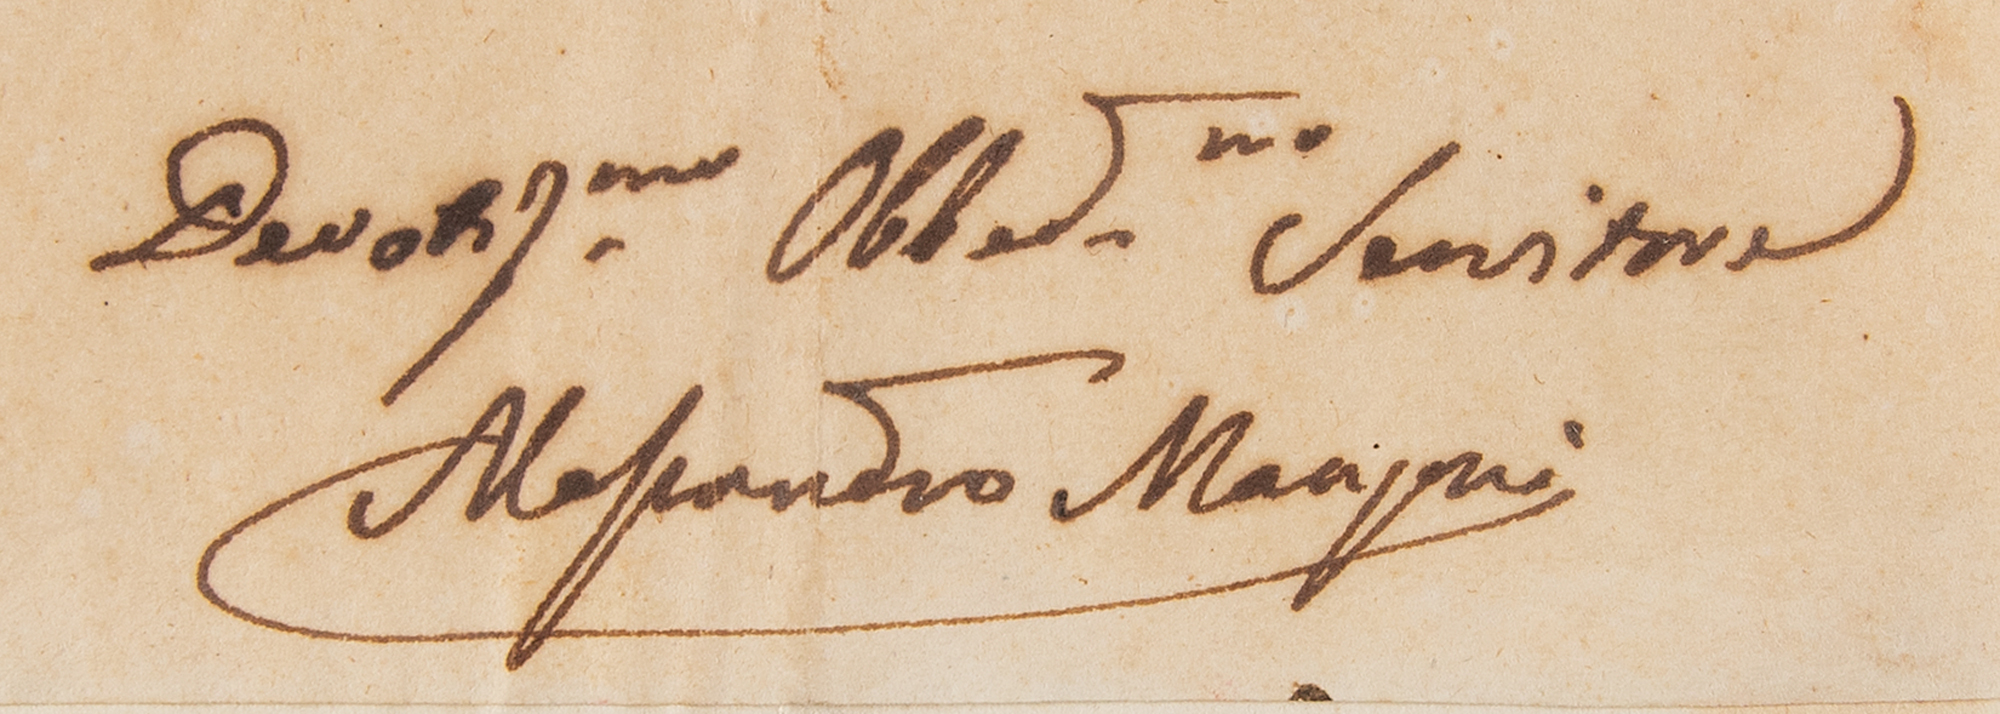 Devotis.mo Obbed.mo Servitore
Alessandro Manzoni